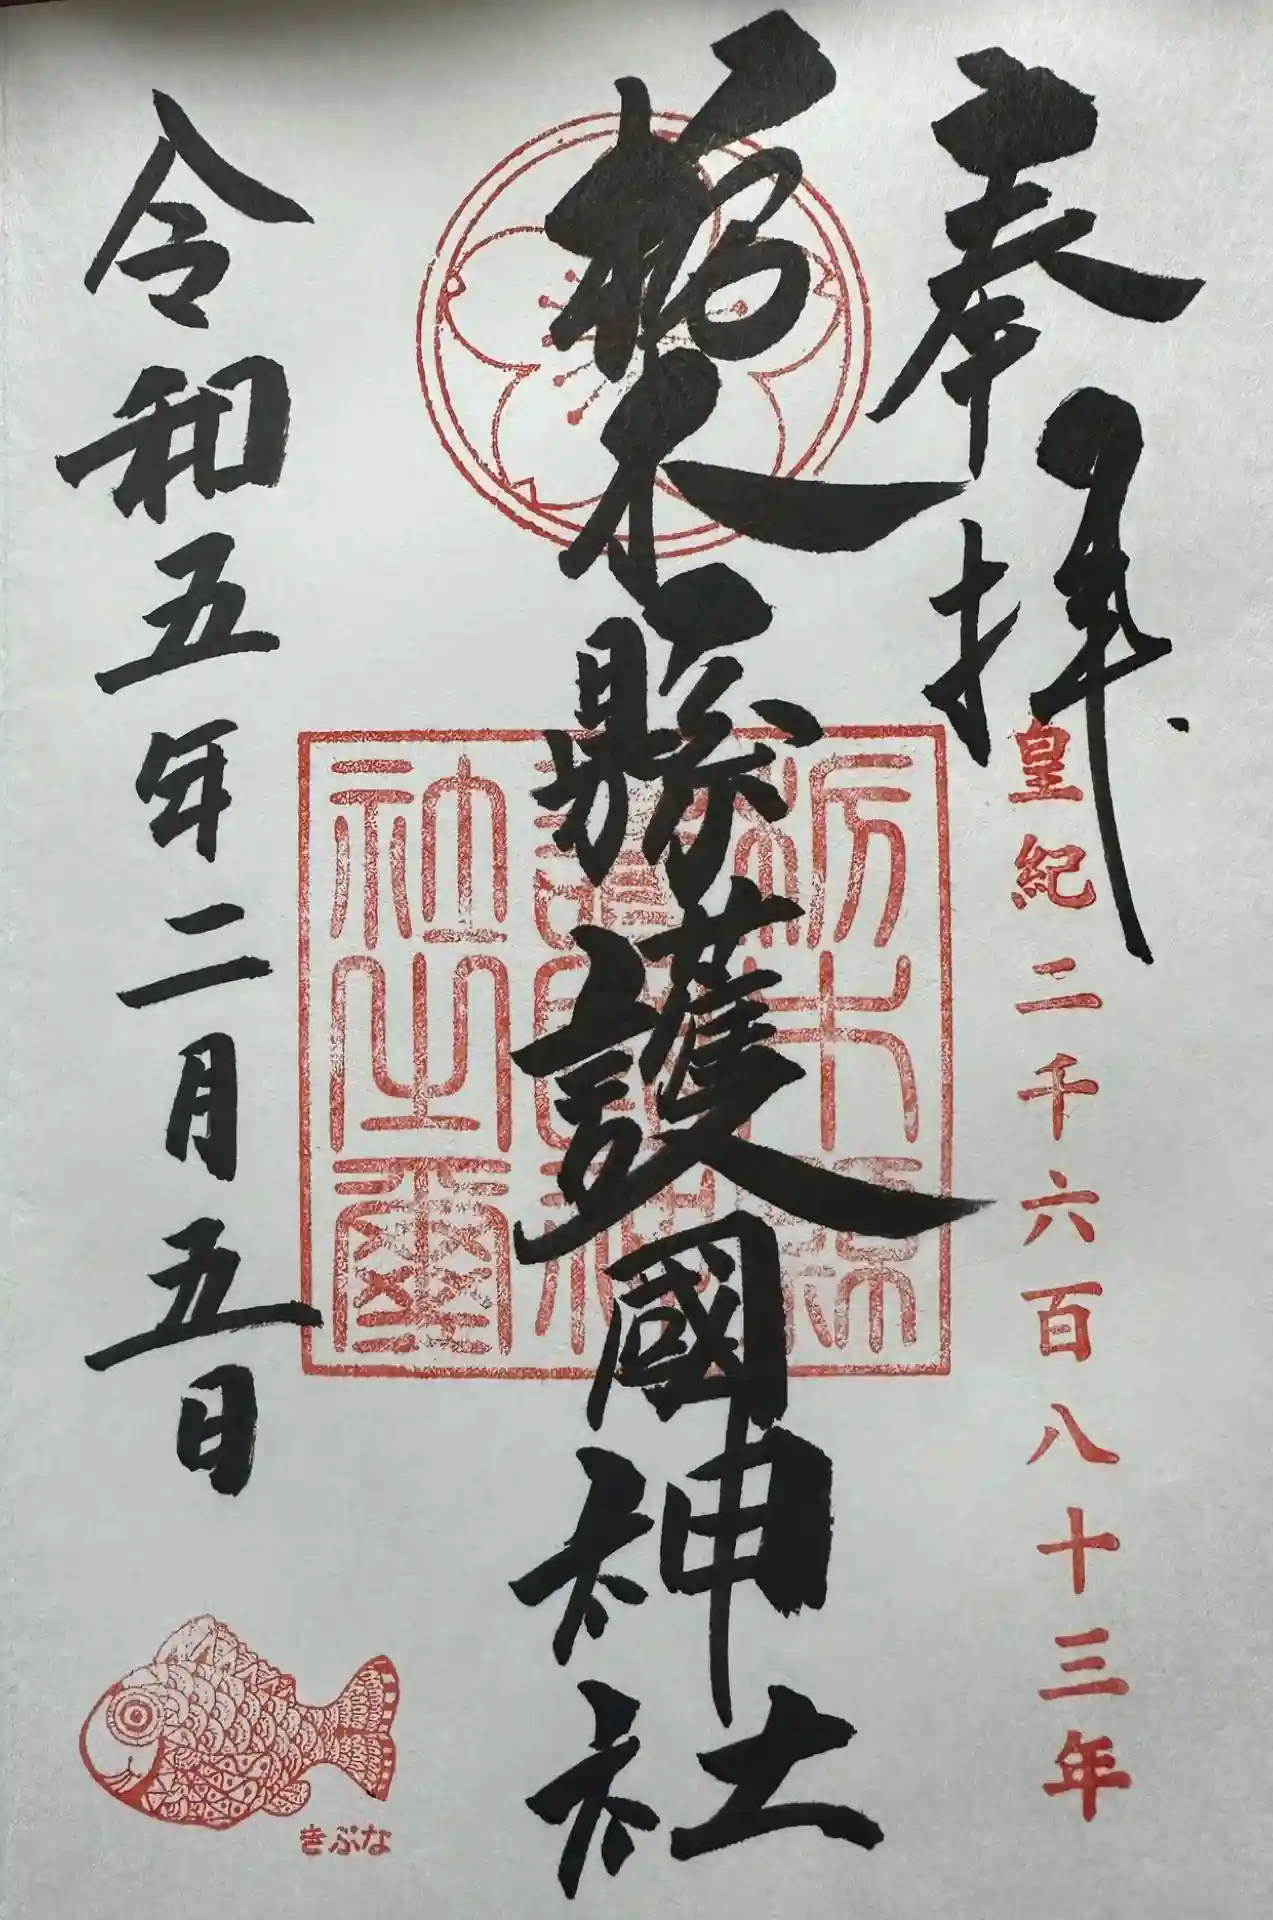 奉拝
皇紀二千六百八十三年
栃木縣護國神社
栃木縣
護國神
社之璽
令和五年二月五日
きぶな